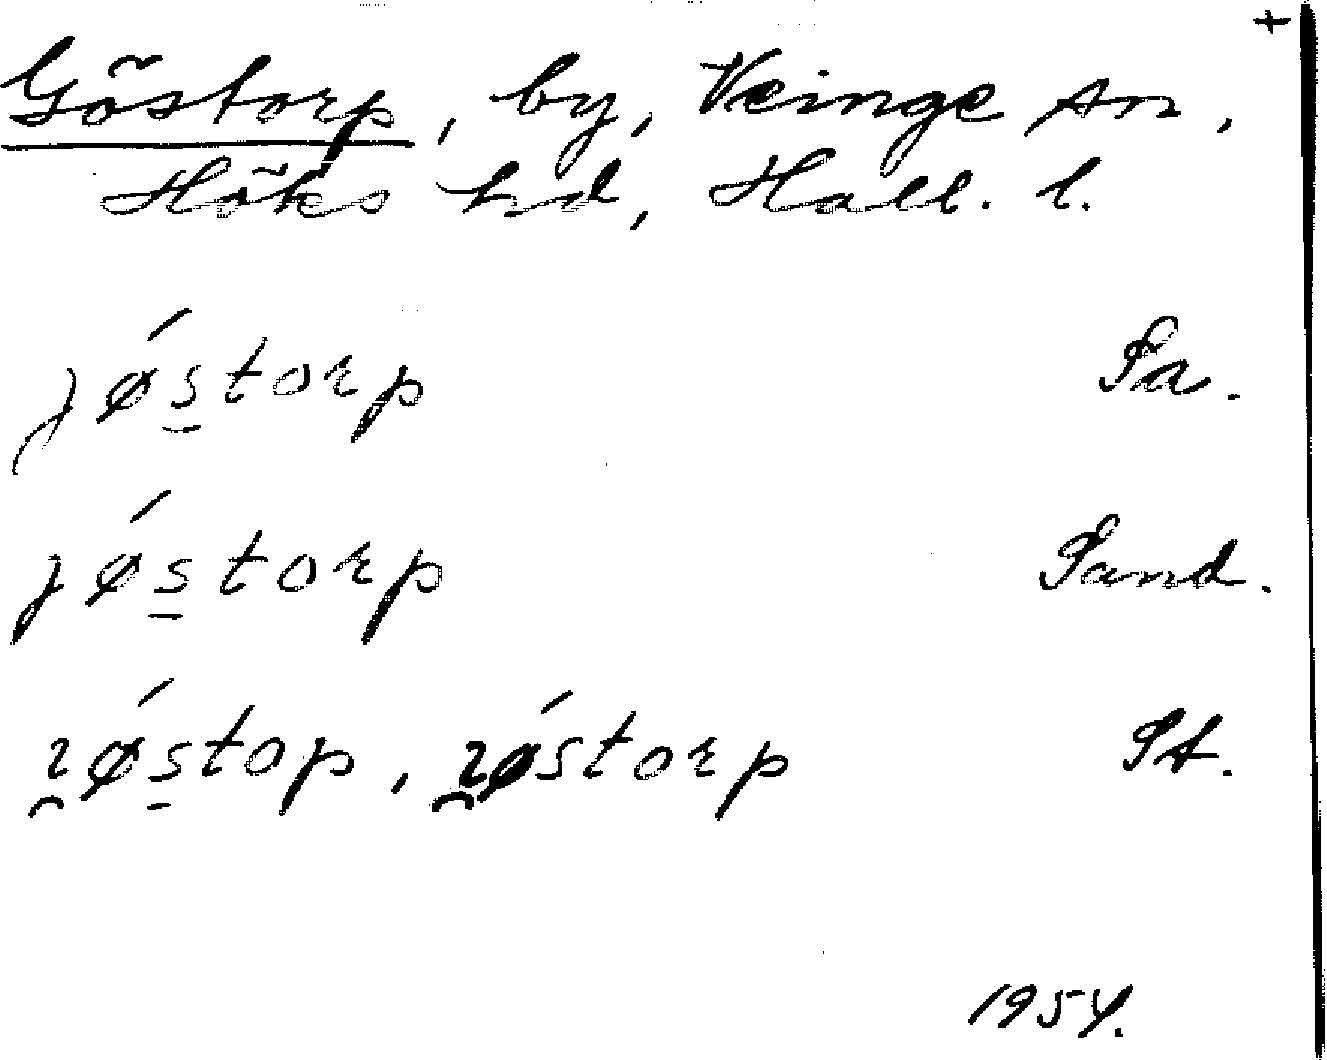 +
Göstorp, by, Veinge sn,
Höks hd, Hall. l.
jǿs̠torp Sa.
jǿs̠torp Sand.
ɿ̯ǿs̠top, ɿ̯ǿstorp St.
1954.